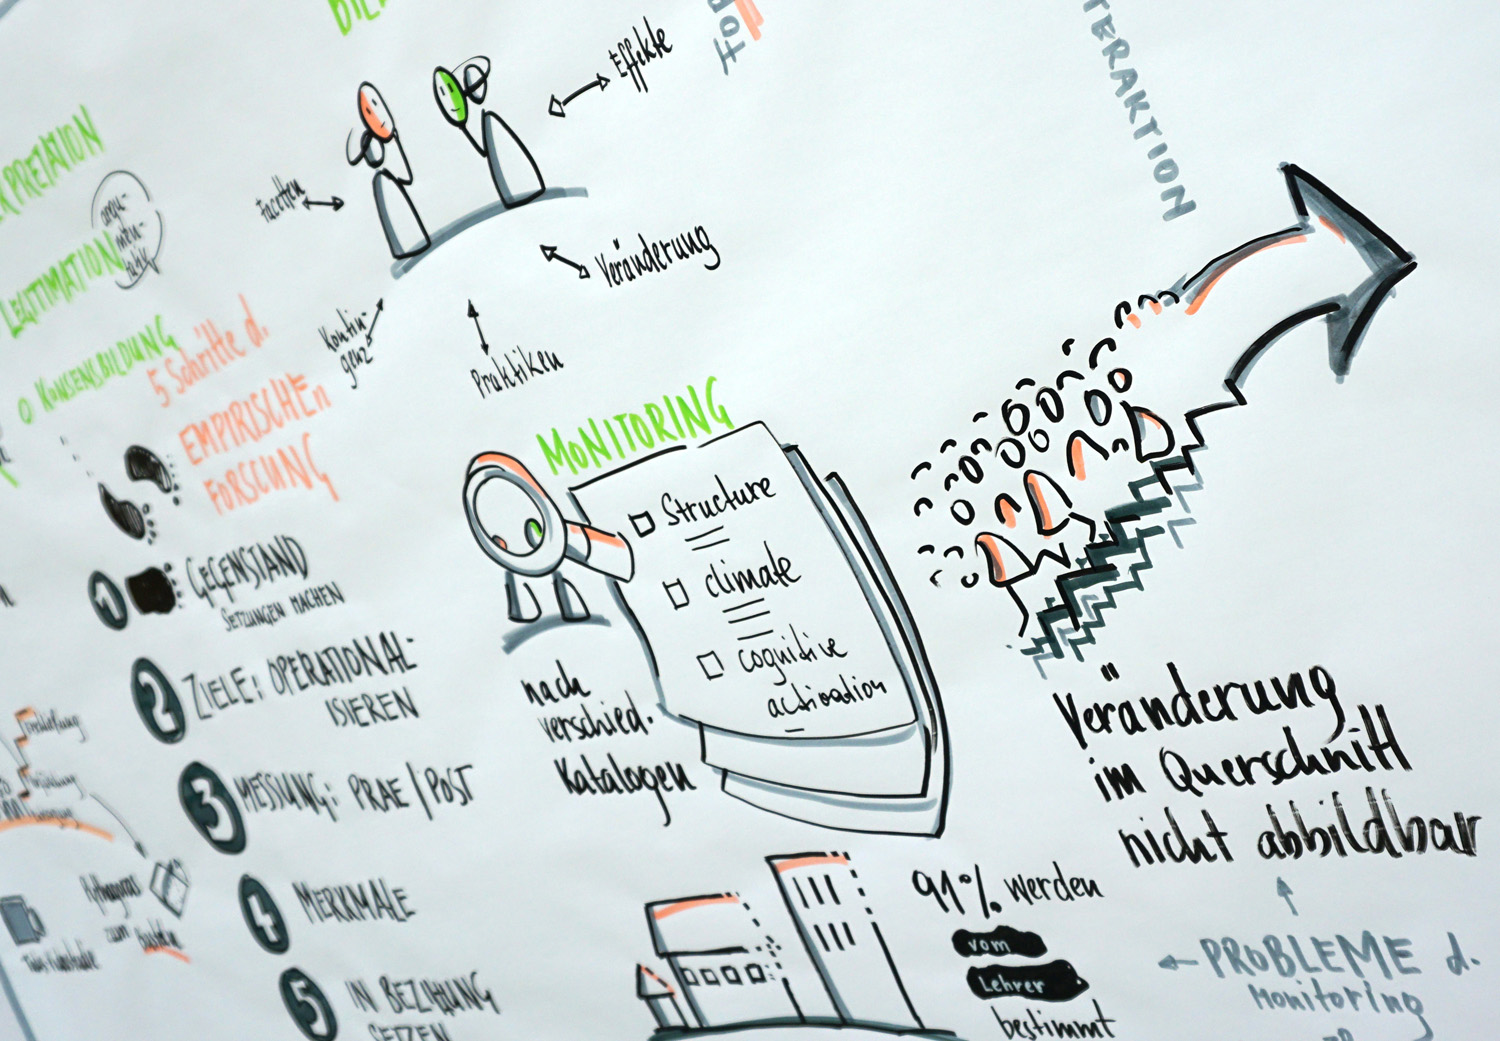 TERAKTION
Effekte
Facetten
Veränderung
Kontin-
genz
Praktiken
RPRETATION
LEGITIMATION
argu-
men-
tativ
O KONSENSBILDUNG
5 Schritte d.
EMPIRISCHEn
FORSCUNG
1 GEGENSTAND
SETZUNGEN MACHEN
2 ZIELE: OPERATIONAL-
ISIEREN
3 MESSUNG: PRAE/POST
4 MERKMALE
5 IN BEZIHUNG
SETZEN
MONITORING
Structure
climate
cognitive
activation
nach
verschied.
Katalogen
Veränderung
im Querschnitt
nicht abbildbar
91% werden
vom
Lehrer
bestimmt
PROBLEME d.
Monitoring